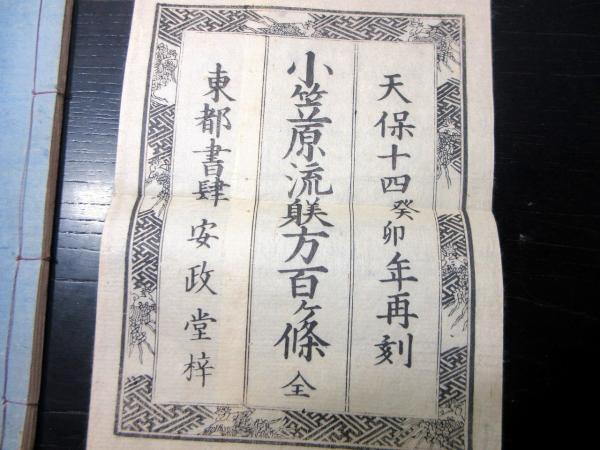 天保十四癸卯年再刻
小笠原流躾方百ケ條 全
東都書肆 安政堂梓